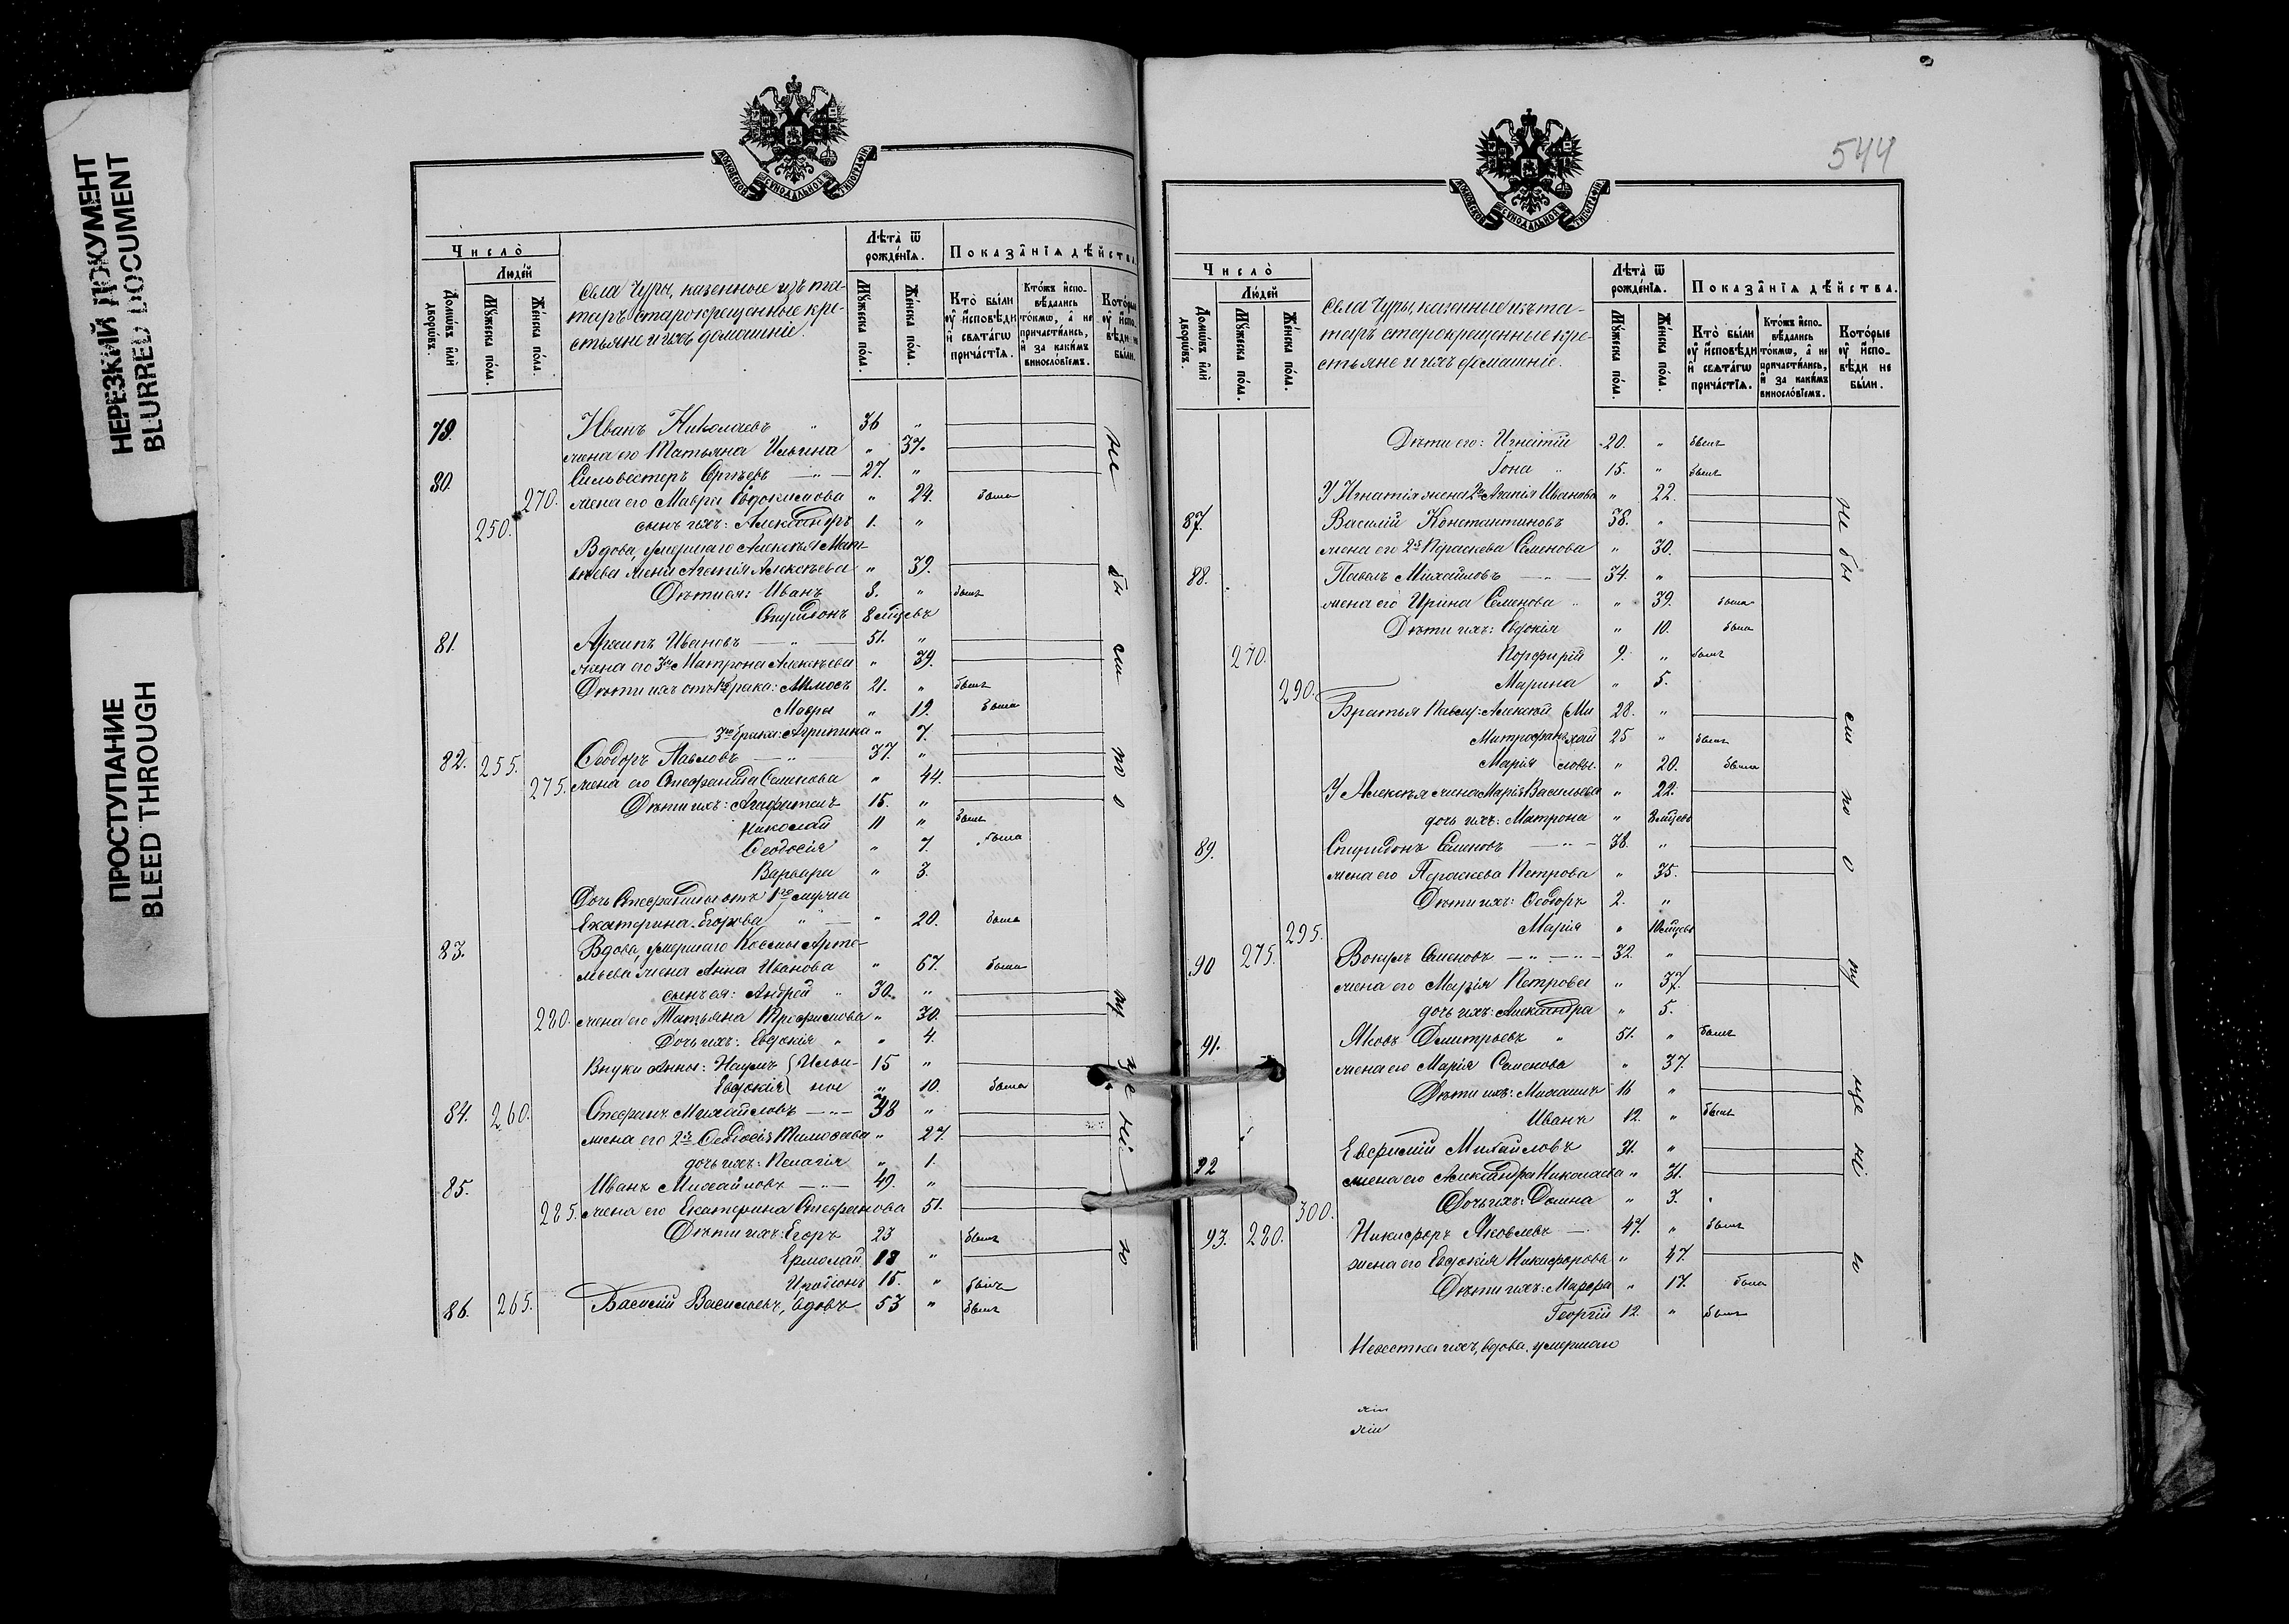 НЕРЕЗКИЙ ДОКУМЕНТ
BLURRED DOCUMENT
ПРОСТУПАНИЕ
BLEED THROUGH
МОСКОВСКОЙ СѴНОДАЛЬНОЙ ТИПОГРАФІИ
Число̀
Лѣта̀ ѿ рожде́нїѧ.
Показа̂нїѧ дѣ́йства.
Люде́й
Домѡ́въ и҆лѝ дворѡ́въ.
Мꙋ́жеска по́ла.
Же́нска по́ла.
Села Чуры, казенные изъ та-
таръ старокрещенные кре-
стьяне и ихъ домашніе.
Мꙋ́жеска по́ла.
Же́нска по́ла.
Кто̀ бы́ли оу҆ и҆сповѣди и҆ свѧта́гѡ прича́стїѧ.
Кто́жъ и҆спо-вѣдались то́кмѡ, а҆ не причасти́лись, и҆ за каки́мъ винослѡ́вїемъ.
Кото́рые оу҆ и҆спо-вѣди не бы́ли.
79. Иванъ Николаевъ " 36 "
жена его Татьяна Ильина " 37.
80. Сильвестеръ Сергѣевъ — " — 27. "
270. жена его Мавра Евдокимова " 24. была
250. сынъ ихъ: Александръ 1. "
Вдова, умершаго Алексѣя Мат-
вѣева жена Агафія Алексѣева " 39.
Дѣти ея: Иванъ 8. " былъ
Спиридонъ 8 мѣцевъ
81. Архипъ Ивановъ — " — 51. "
жена его 3я Матрона Алексѣева " 39.
Дѣти ихъ отъ 1го брака: Амосъ 21. " былъ
Мавра " 19. была
3го брака: Агрипина " 7.
82. 255. Ѳеодоръ Павловъ — " — 37. "
275. жена его Стефанида Семенова " 44.
Дѣти ихъ: Агафангелъ 15. "
Николай 11 " былъ
Ѳеодосія " 7. была
Варвара " 3.
Дочь Стефаниды отъ 1го мужа
Екатерина Егорова " — " 20. была
83. Вдова, умершаго Космы Арте-
мьева жена Анна Иванова " 67. была
сынъ ея: Андрей " 30. "
280. жена его Татьяна Трофимова " 30.
Дочь ихъ: Евдокія " " 4.
Внуки Анны: Наумъ { Ильи- 15 "
Евдокія { ны " 10. была
84. 260. Стефанъ Михайловъ — " — 38 "
жена его 2я Ѳеодосія Тимоѳеева " 27.
дочь ихъ: Пелагія " 1.
85. Иванъ Михайловъ — " — 49. "
285. жена его Екатерина Стефанова 51.
Дѣти ихъ: Егоръ 23 былъ
Ермолай 18 "
15. " былъ
86. 265. Василій Васильевъ, вдовъ 53 " былъ
не бы ли по о пу ще ні ю
544
МОСКОВСКОЙ СѴНОДАЛЬНОЙ ТИПОГРАФІИ
Число̀
Лѣта̀ ѿ рожде́нїѧ.
Показа̂нїѧ дѣ́йства.
Люде́й
Домѡ́въ и҆лѝ дворѡ́въ.
Мꙋ́жеска по́ла.
Же́нска по́ла.
Села Чуры, казенные изъ та-
таръ старокрещенные кре-
стьяне и ихъ домашніе.
Мꙋ́жеска по́ла.
Же́нска по́ла.
Кто̀ бы́ли оу҆ и҆сповѣди и҆ свѧта́гѡ прича́стїѧ.
Кто́жъ и҆спо-вѣдались то́кмѡ, а҆ не причасти́лись, и҆ за каки́мъ винослѡ́вїемъ.
Кото́рые оу҆ и҆спо-вѣди не бы́ли.
Дѣти его: Игнатій 20. " былъ
Іона " 15. " былъ
У Игнатія жена 2я Агапія Иванова " 22.
87. Василій Константиновъ 38. "
жена его 2я Параскева Семенова " 30.
88. Павелъ Михайловъ — " — 34. "
жена его Ирина Семенова " " 39. была
Дѣти ихъ: Евдокія " 10. была
270. Порфирій 9. " былъ
290. Марина " 5.
Братья Павлу: Алексѣй { Ми 28. "
Митрофанъ хай 25 " былъ
Марія { ловы. " 20. была
У Алексѣя жена Марія Васильева " 22.
дочь ихъ: Матрона " 8 мѣцевъ
89. Спиридонъ Семеновъ — " — 38. "
жена его Параскева Петрова " 35.
Дѣти ихъ: Ѳеодоръ 2. "
295. Марія " 10 мѣцевъ
90 275. Вокулъ Семеновъ — " — " — 32. "
жена его Марія Петрова " 37.
дочь ихъ: Александра " 5.
91. Яковъ Димитріевъ " 51. " былъ
жена его Марія Семенова " 37.
Дѣти ихъ: Михаилъ 16 "
Иванъ 12. " былъ
92 Евфимій Михайловъ 31. "
жена его Александра Николаева " 31.
300. Дочь ихъ: Домна " 3. "
93. 280. Никифоръ Яковлевъ — 47. " былъ
жена его Евдокія Никифорова " 47.
Дѣти ихъ: Марфа " 17. была
Георгій 12. " былъ
Невестка ихъ, вдова, умершаго
не бы ли по о пу ще ні ю